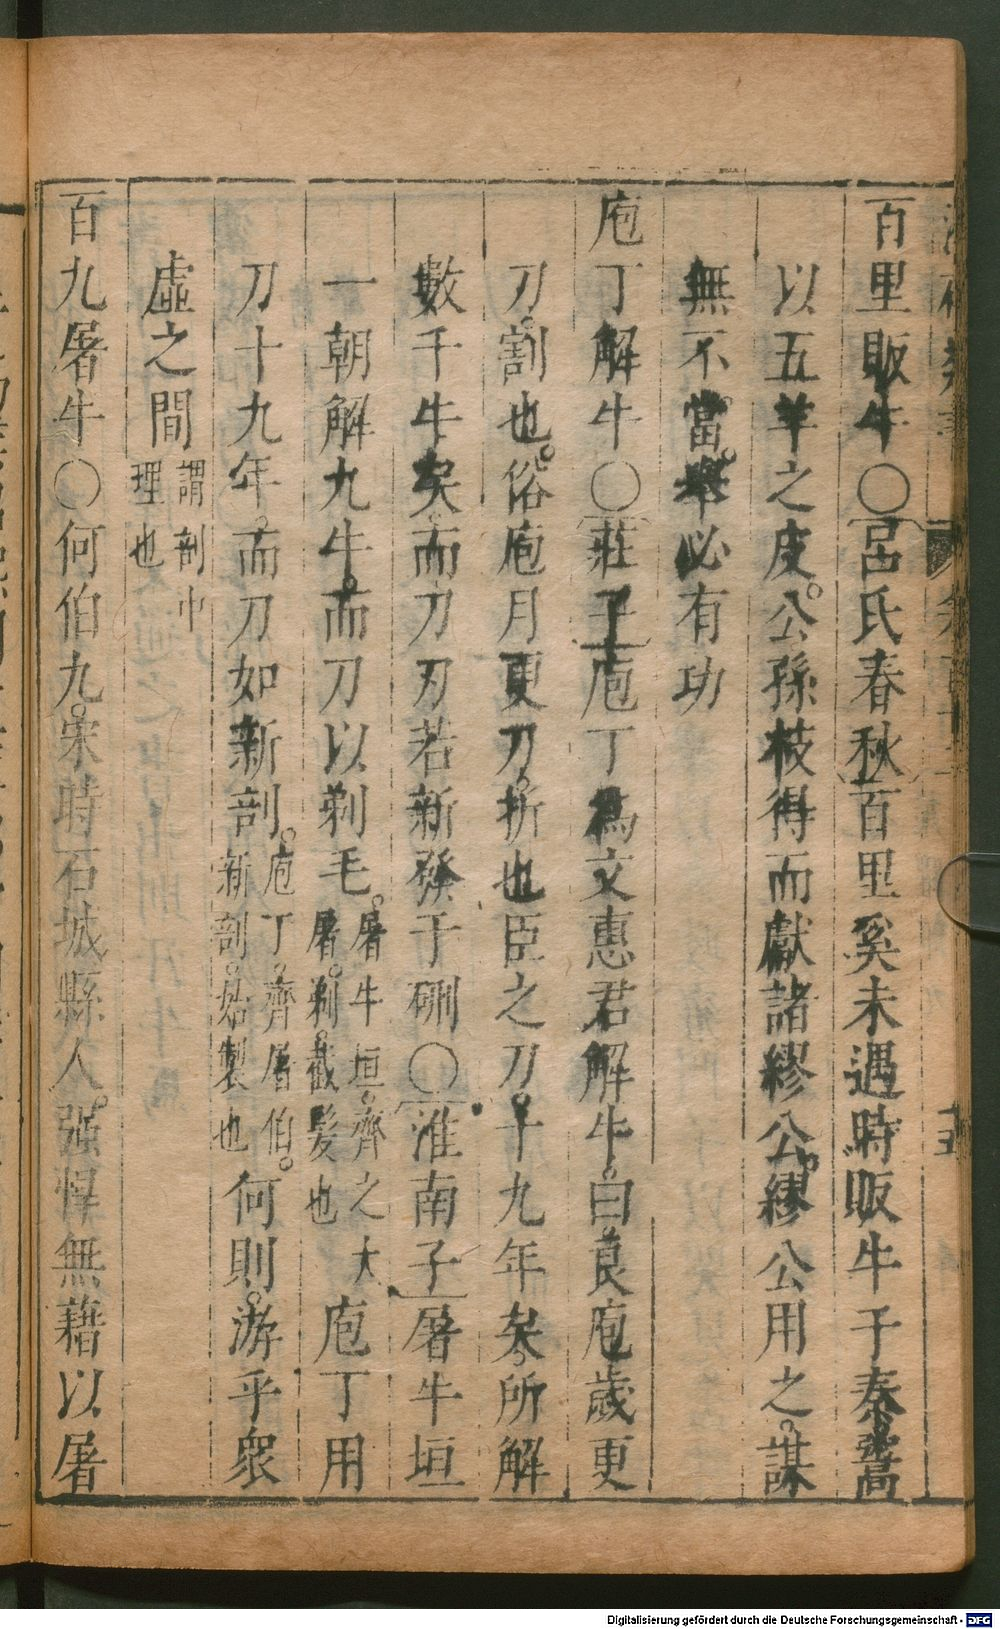 百里販牛○呂氏春秋百里奚未遇時販牛于秦鬻
以五羊之皮。公孫枝得而獻諸繆公。繆公用之。謀
無不當。舉必有功
庖丁解牛○莊子庖丁爲文惠君解牛。曰良庖歲更
刀。割也。俗庖月更刀。折也臣之刀。十九年矣。所解
數千牛矣。而刀刃若新發于硎○淮南子屠牛垣
一朝解九牛。而刀以剃毛。屠牛垣。齊之大屠。剃。截髮也庖丁用
刀十九年。而刀如新剖。庖丁。齊屠伯。新剖。始製也何則。游乎衆
虛之間謂剖中理也
百九屠牛○何伯九。宋時石城縣人。强悍無藉以屠
Digitalisierung gefördert durch die Deutsche Forschungsgemeinschaft - DFG